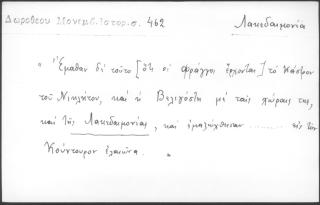 Δωροθέου Μονεμβ. Ιστορισ. 462
Λακεδαιμονία
" Ἔμαθαν δὲ τοῦτο [ὅτι οἱ Φράγγοι ἔρχονται] τὸ Κάστρον
τοῦ Νικλήτου, καὶ ἡ Βελιγόστη μὲ ταῖς χώραις της,
καὶ τῆς Λακεδαιμονίας, καὶ ἐμαζώχθησαν ......... εἰς τὴν
Κούντουρον ἐλαιῶνα. "